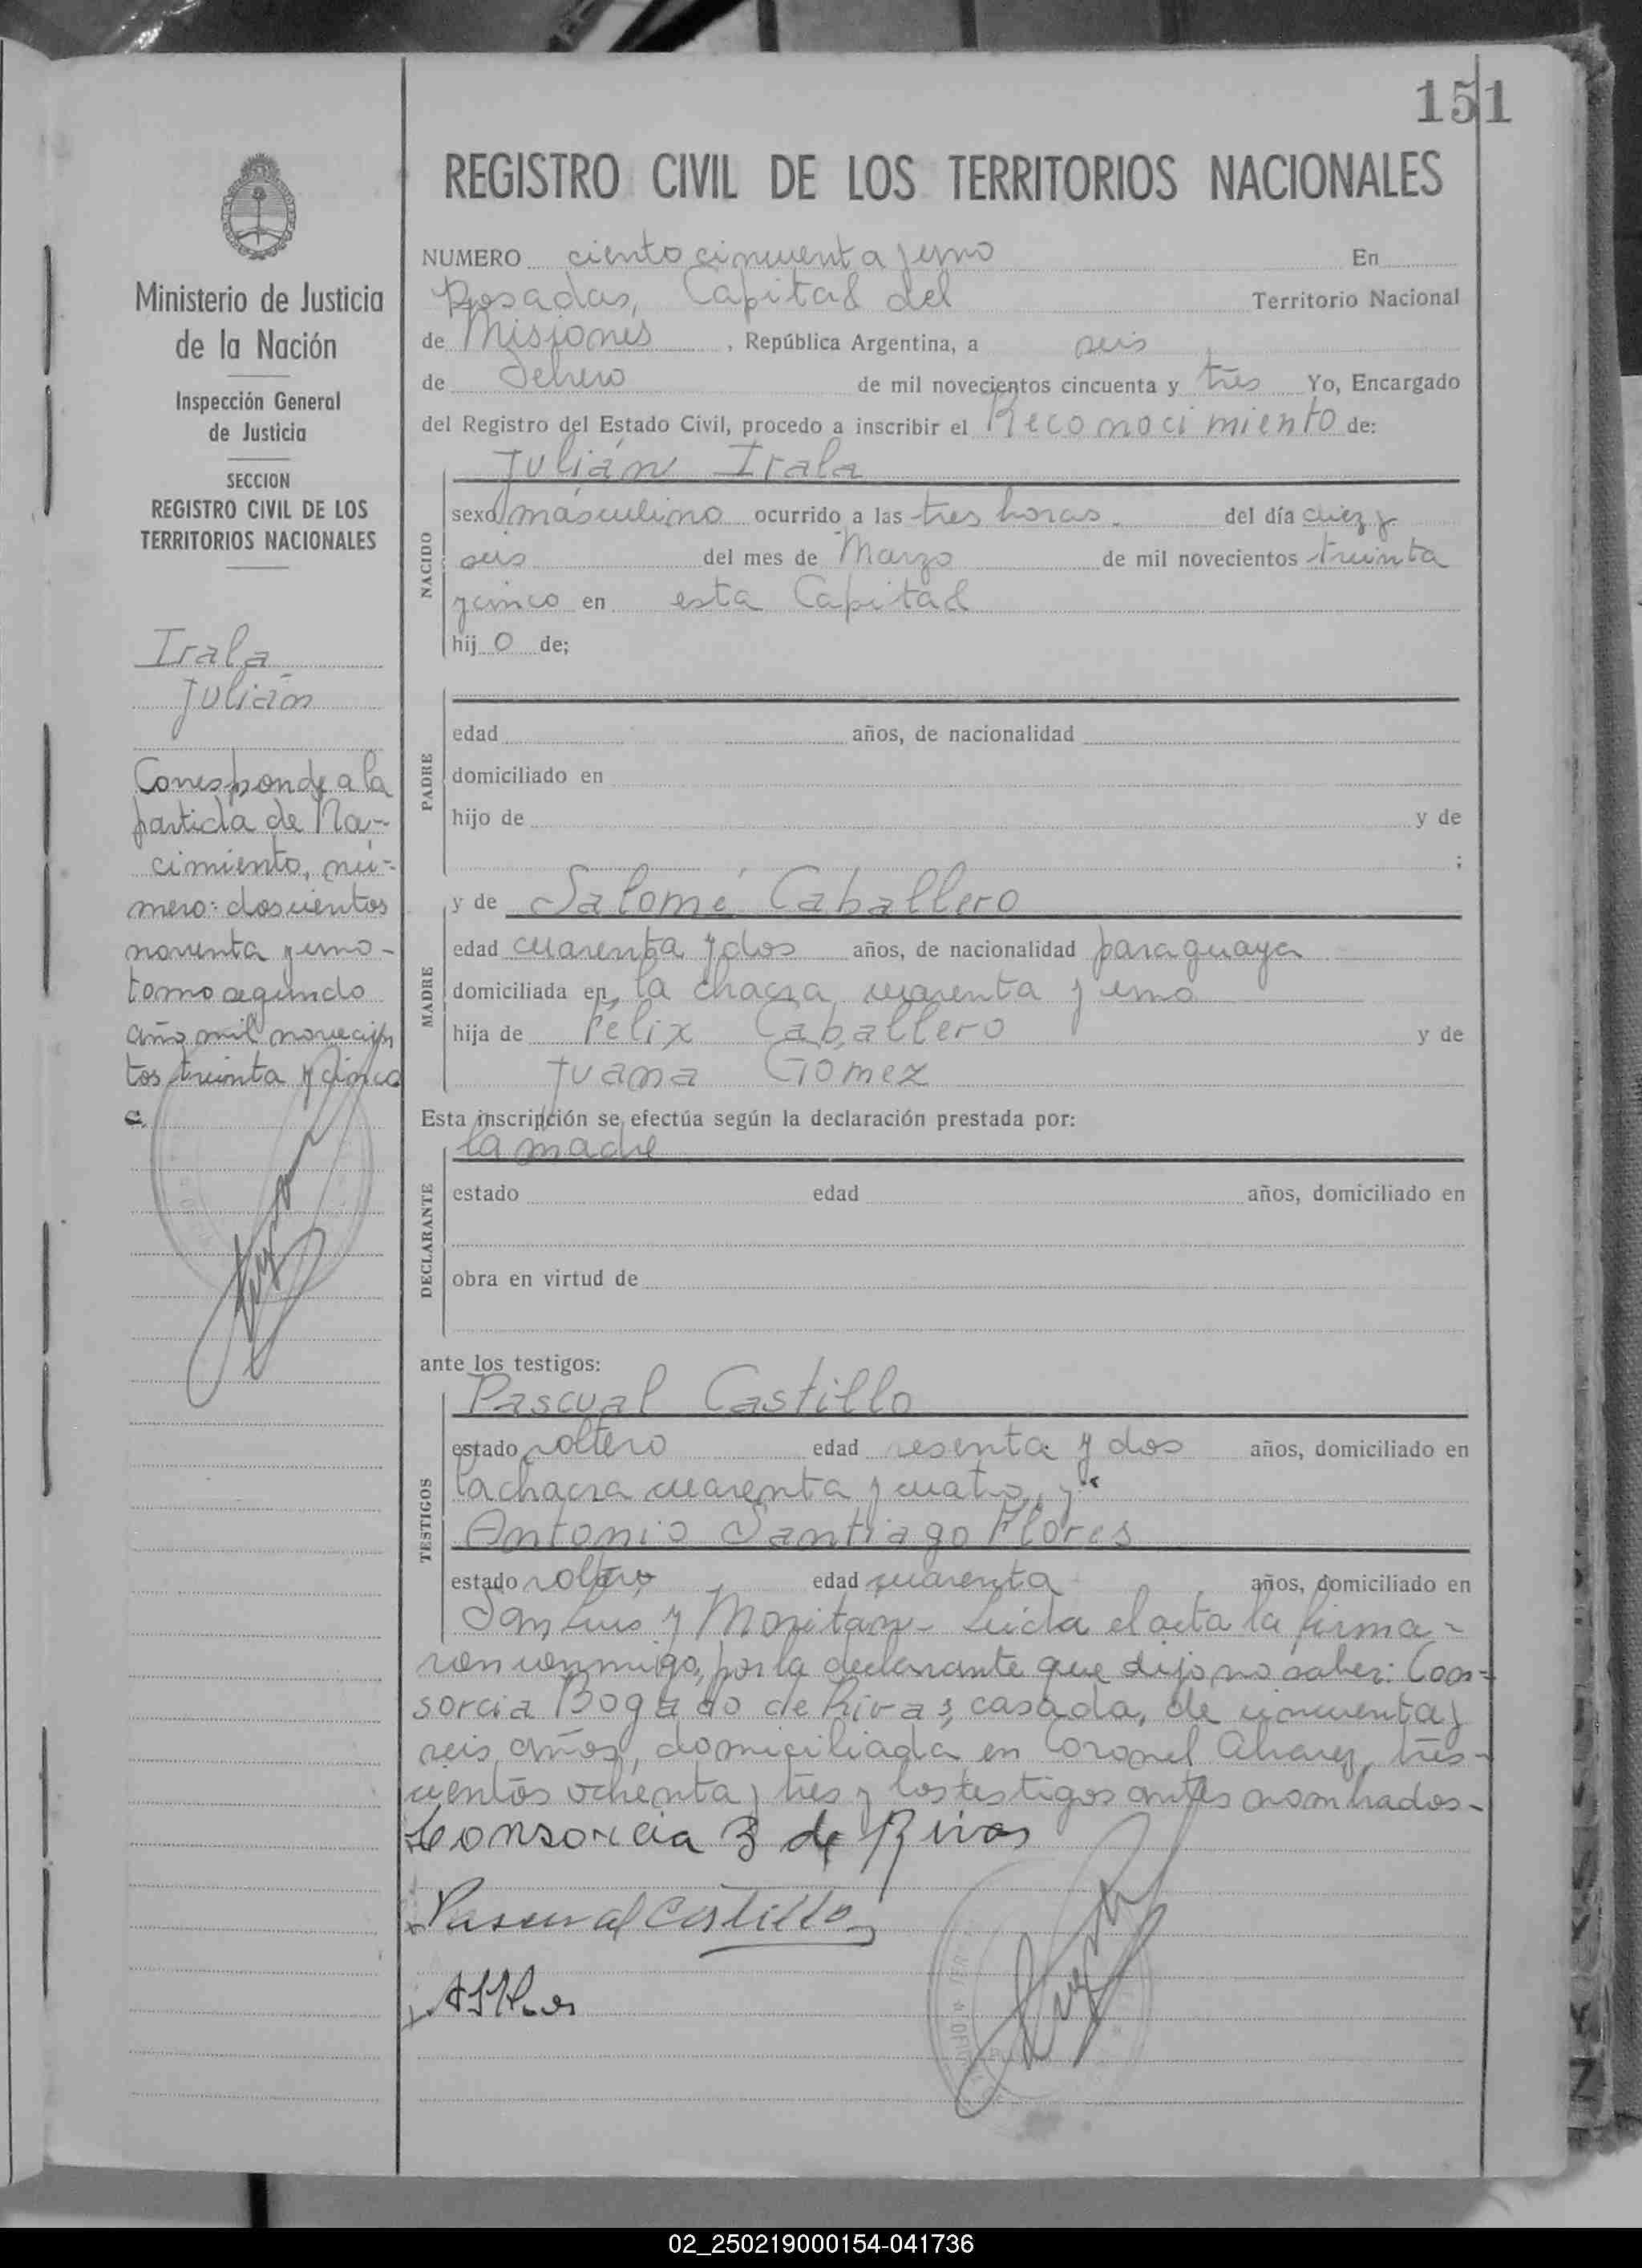 151
REGISTRO CIVIL DE LOS TERRITORIOS NACIONALES
Ministerio de Justicia
de la Nación
Inspección General
de Justicia
SECCION
REGISTRO CIVIL DE LOS
TERRITORIOS NACIONALES
Irala
Julián
Corresponde a la
partida de Na-
cimiento, nú-
mero: doscientos
noventa y uno-
tomo segundo
año mil novecien
tos treinta y cinco
NUMERO ciento cincuenta y uno En
Posadas, Capital del Territorio Nacional
de Misiones, República Argentina, a seis
de Febrero de mil novecientos cincuenta y tres Yo, Encargado
del Registro del Estado Civil, procedo a inscribir el Reconocimiento de:
NACIDO
Julián Irala
sexo masculino ocurrido a las tres horas. del día diez y
seis del mes de Marzo de mil novecientos treinta
y cinco en esta Capital
hij o de;
PADRE
edad años, de nacionalidad
domiciliado en
hijo de y de
;
MADRE
y de Salomé Caballero
edad cuarenta y dos años, de nacionalidad paraguaya
domiciliada en, la chacra cuarenta y uno
hija de Félix Caballero y de
Juana Gómez
Esta inscripción se efectúa según la declaración prestada por:
DECLARANTE
la madre
estado edad años, domiciliado en
obra en virtud de
ante los testigos:
TESTIGOS
Pascual Castillo
estado soltero edad sesenta y dos años, domiciliado en
la chacra cuarenta y cuatro, y
Antonio Santiago Flores
estado soltero edad cuarenta años, domiciliado en
San Luis y Moritan- Leída el acta la firma-
ron conmigo, por la declarante que dijo no saber: Con-
sorcia Bogado de Rivas, casada, de cincuenta y
seis años, domiciliada en Coronel Alvarez, tres-
cientos ochenta y tres y los testigos antes nombrados-
Consorcia B de Rivas
Pascual Castillo
02_250219000154-041736